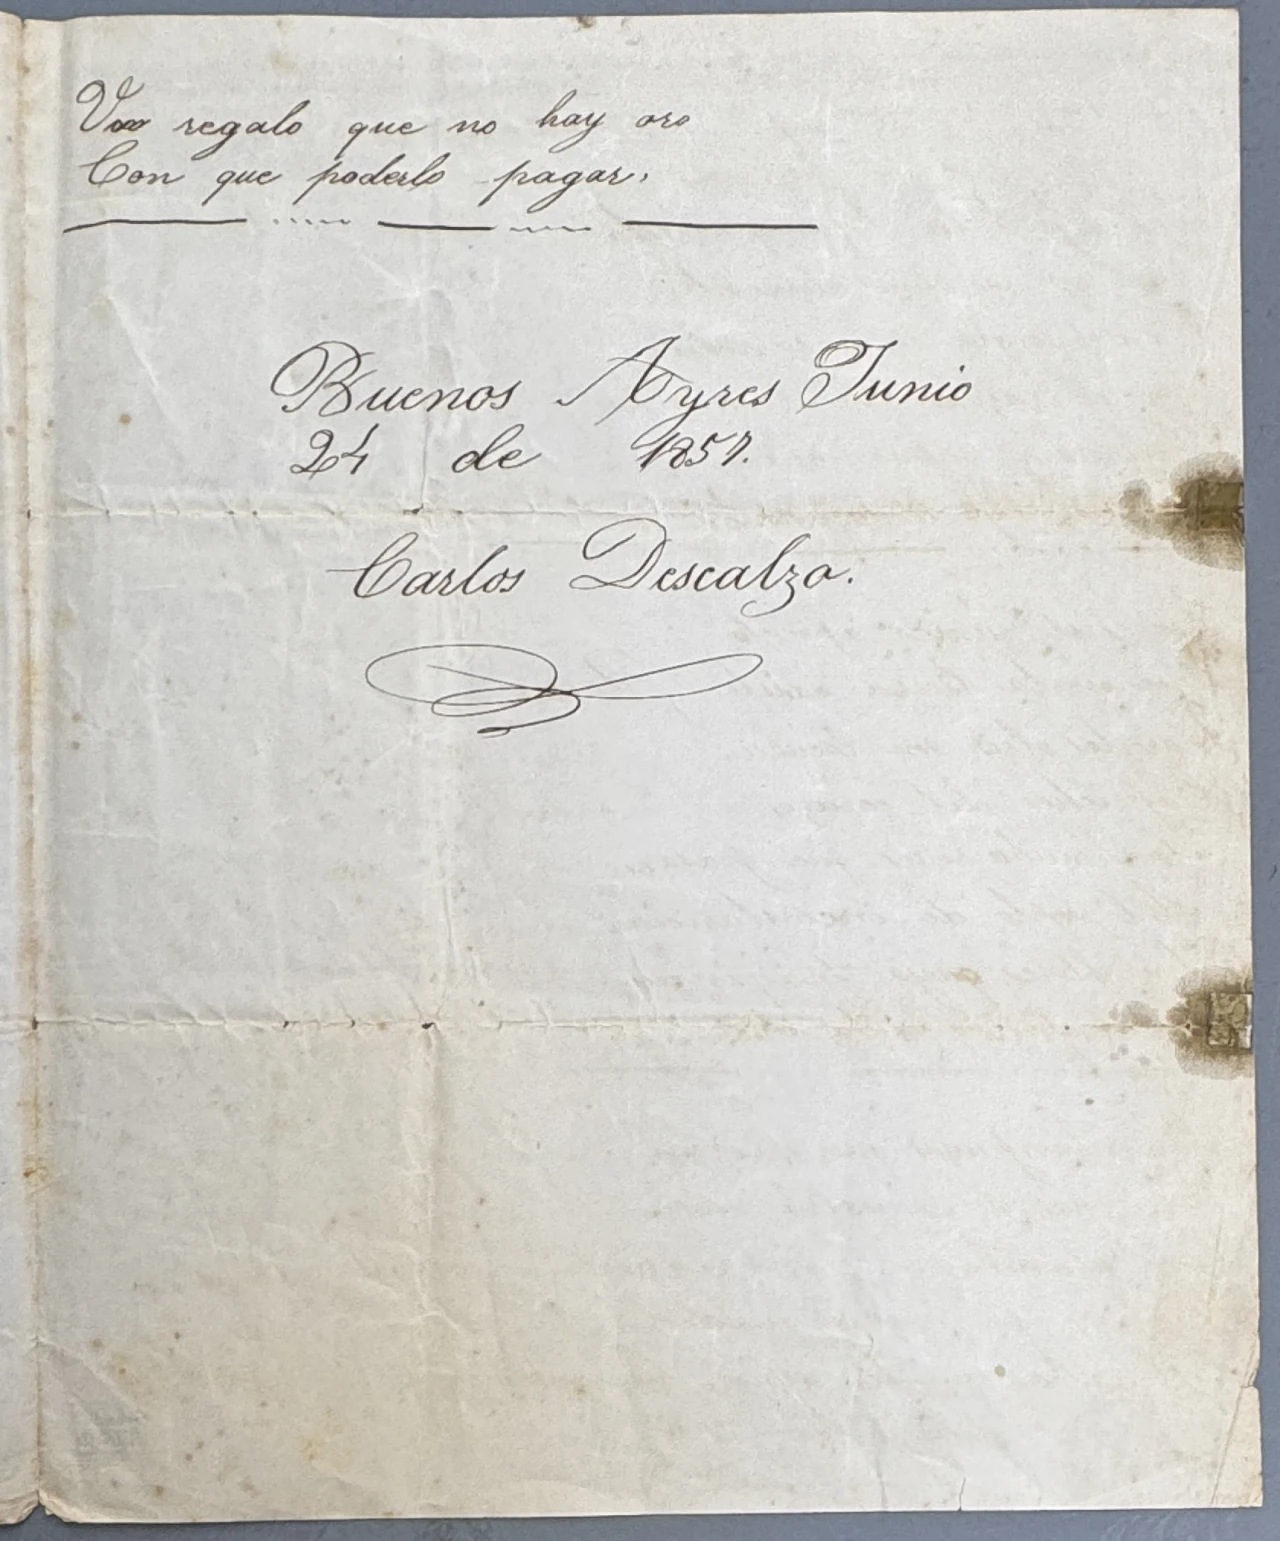 regalo que no hay oro
Con que poderlo pagar.
Buenos Ayres Junio
24 de 1857.
Carlos Descalzo.